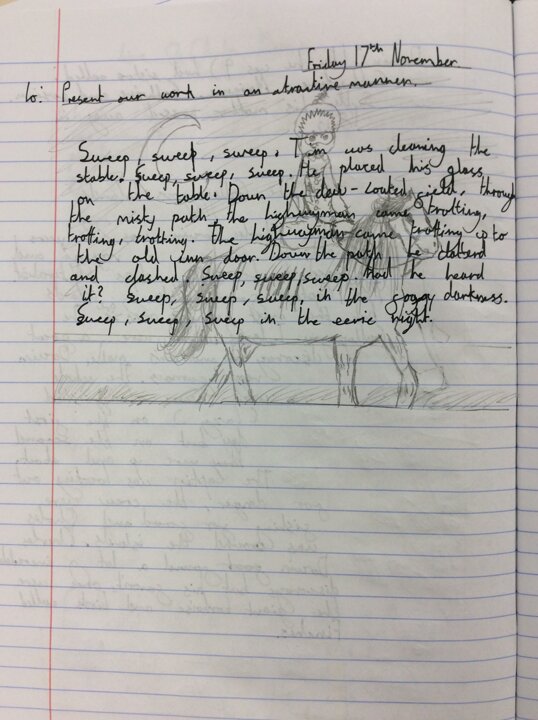 Friday 17th November
Lo: Present our work in an atractive manner.
Sweep, sweep, sweep. Tim was cleaning the
stable. Sweep, sweep, sweep. He placed his glass
on the table. Down the dew-coated field, through
the misty path, the highwayman came trotting,
trotting, trotting. The highwayman came trotting up to
the old inn door. Down the path, he clatterd
and clashed. Sweep, sweep, sweep. Had he heard
it? Sweep, sweep, sweep, in the foggy darkness.
Sweep, sweep, sweep in the eerie night.